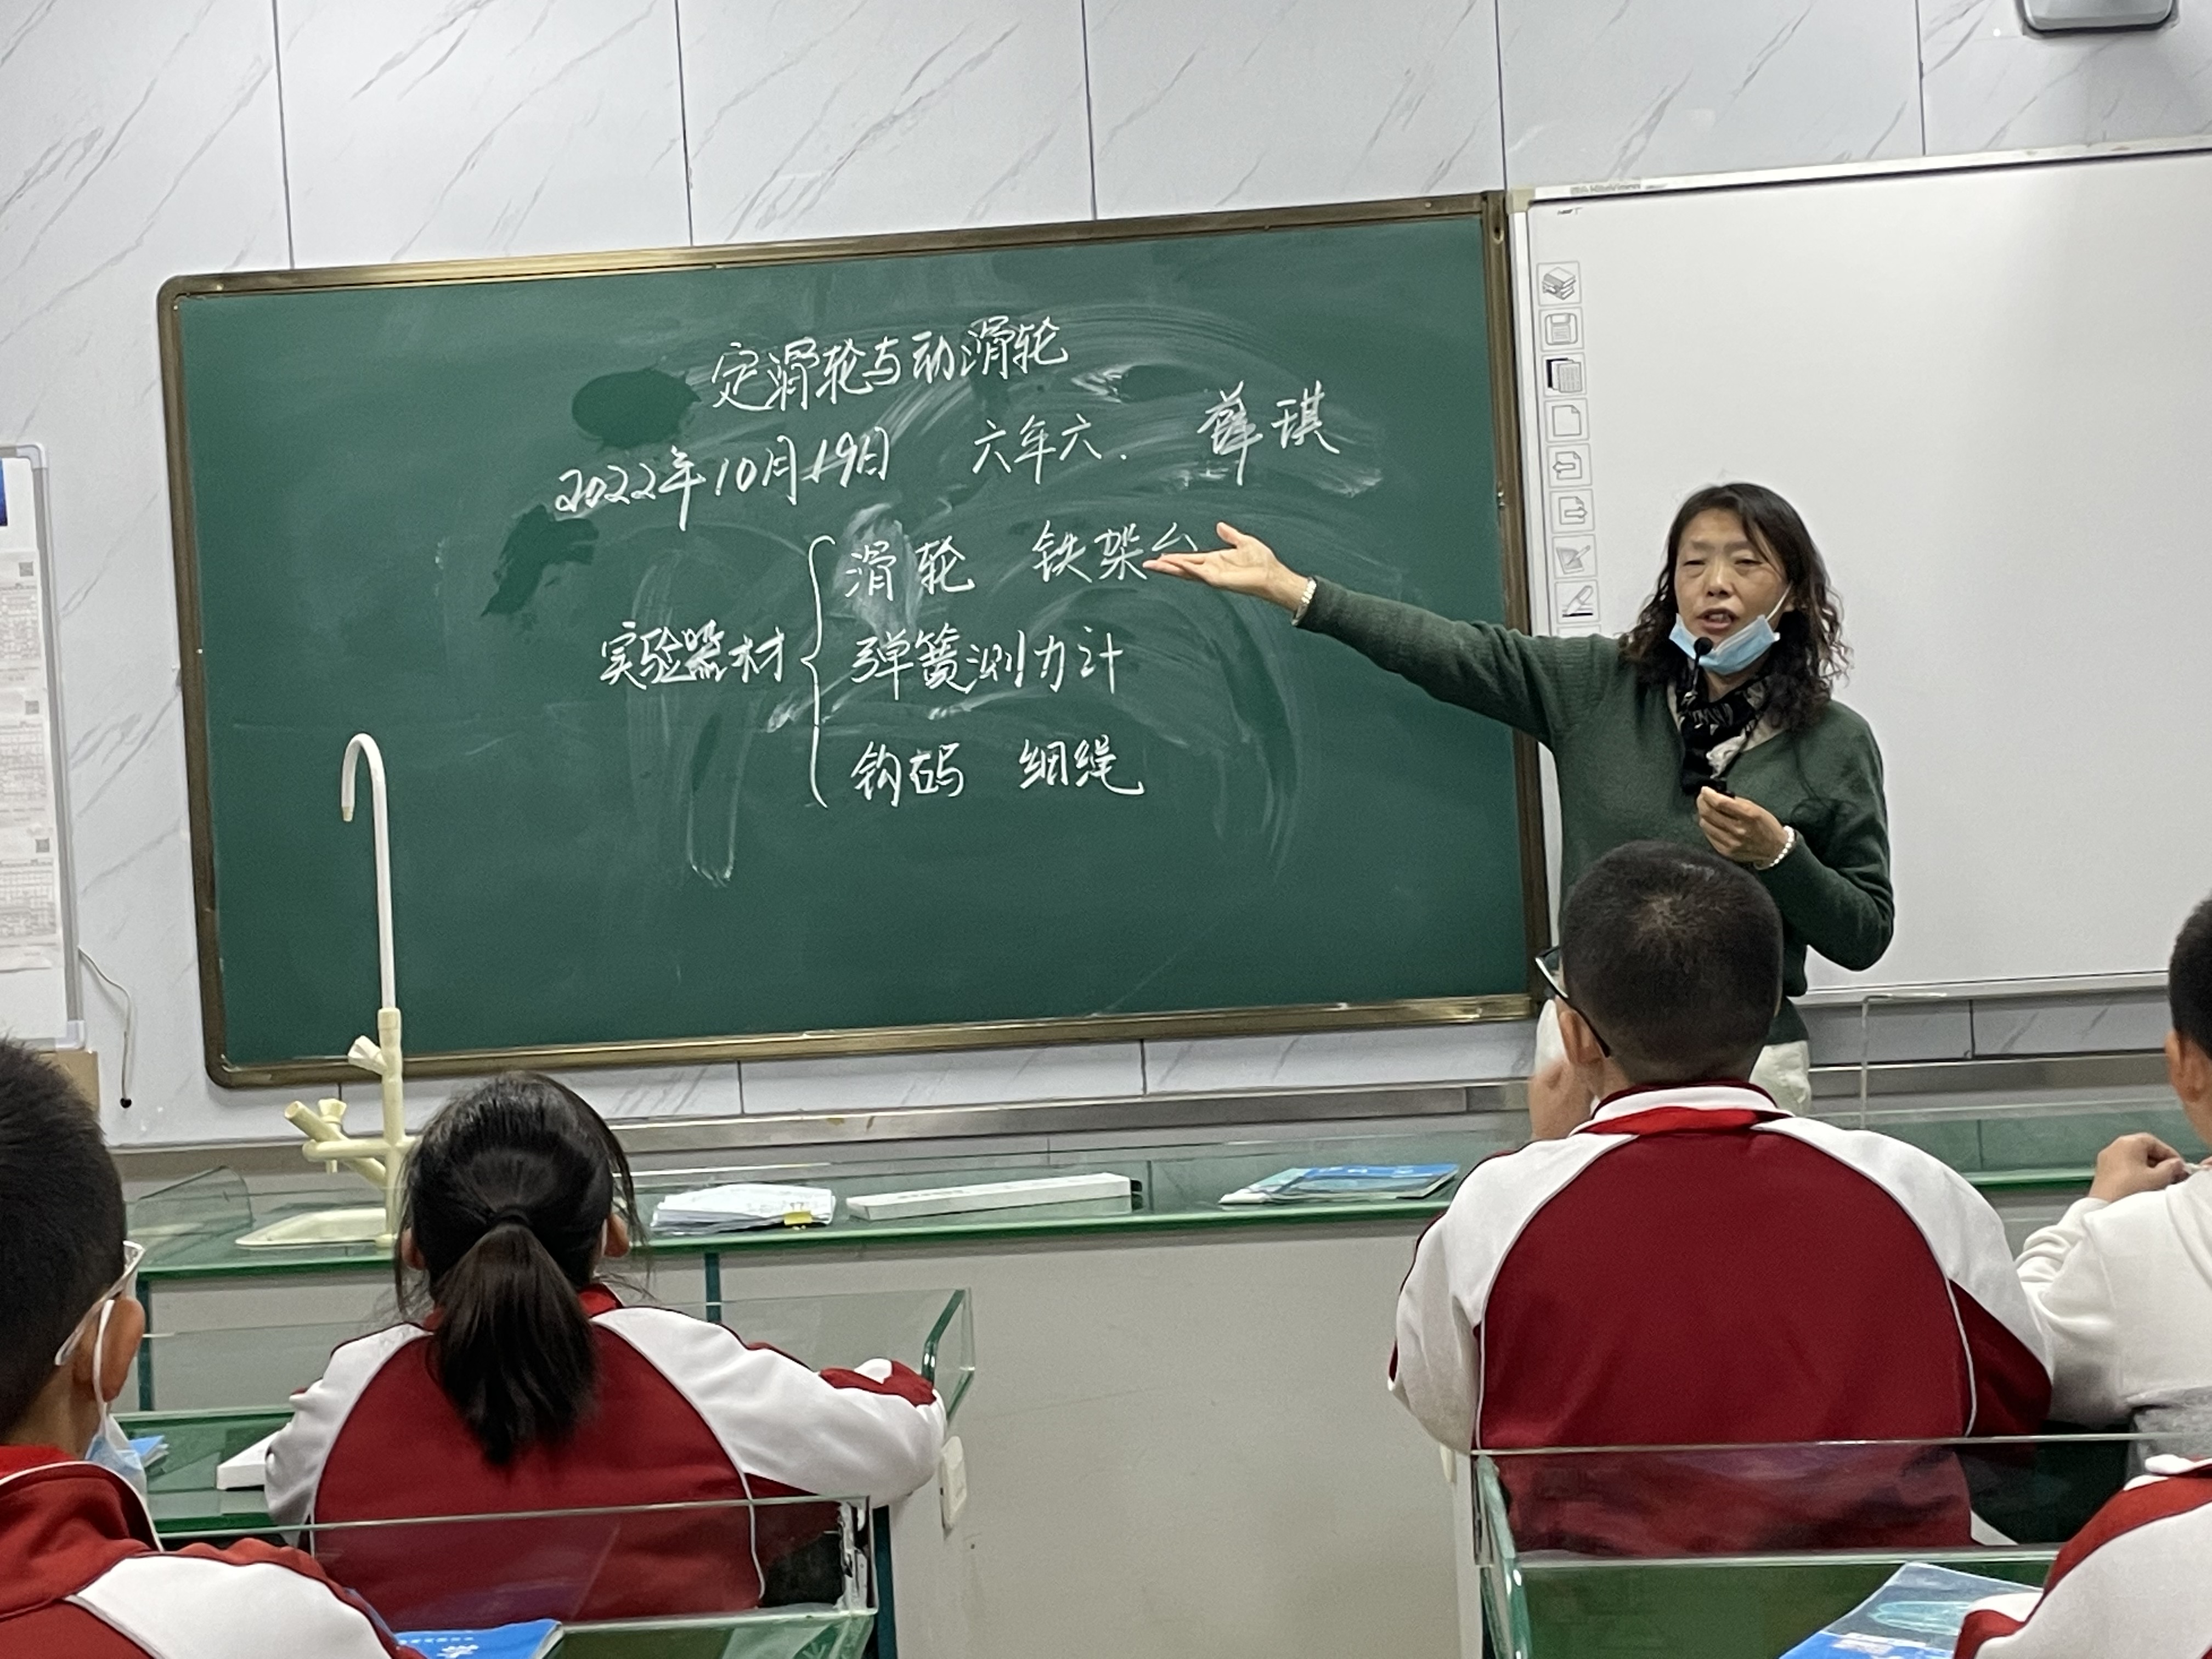 定滑轮与动滑轮
2022年10月19日 六年六. 薛琪
滑轮 铁架台
实验器材 弹簧测力计
钩码 细绳